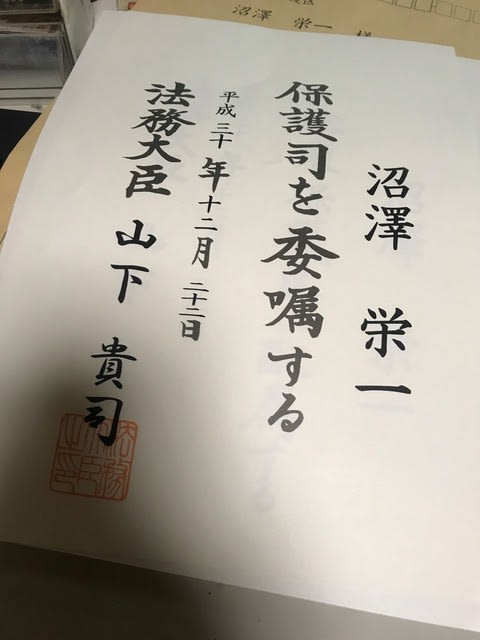 沼澤 栄一 様
沼澤 栄一
保護司を委嘱する
平成三十年十二月二十二日
法務大臣 山下 貴司
法務大臣之印